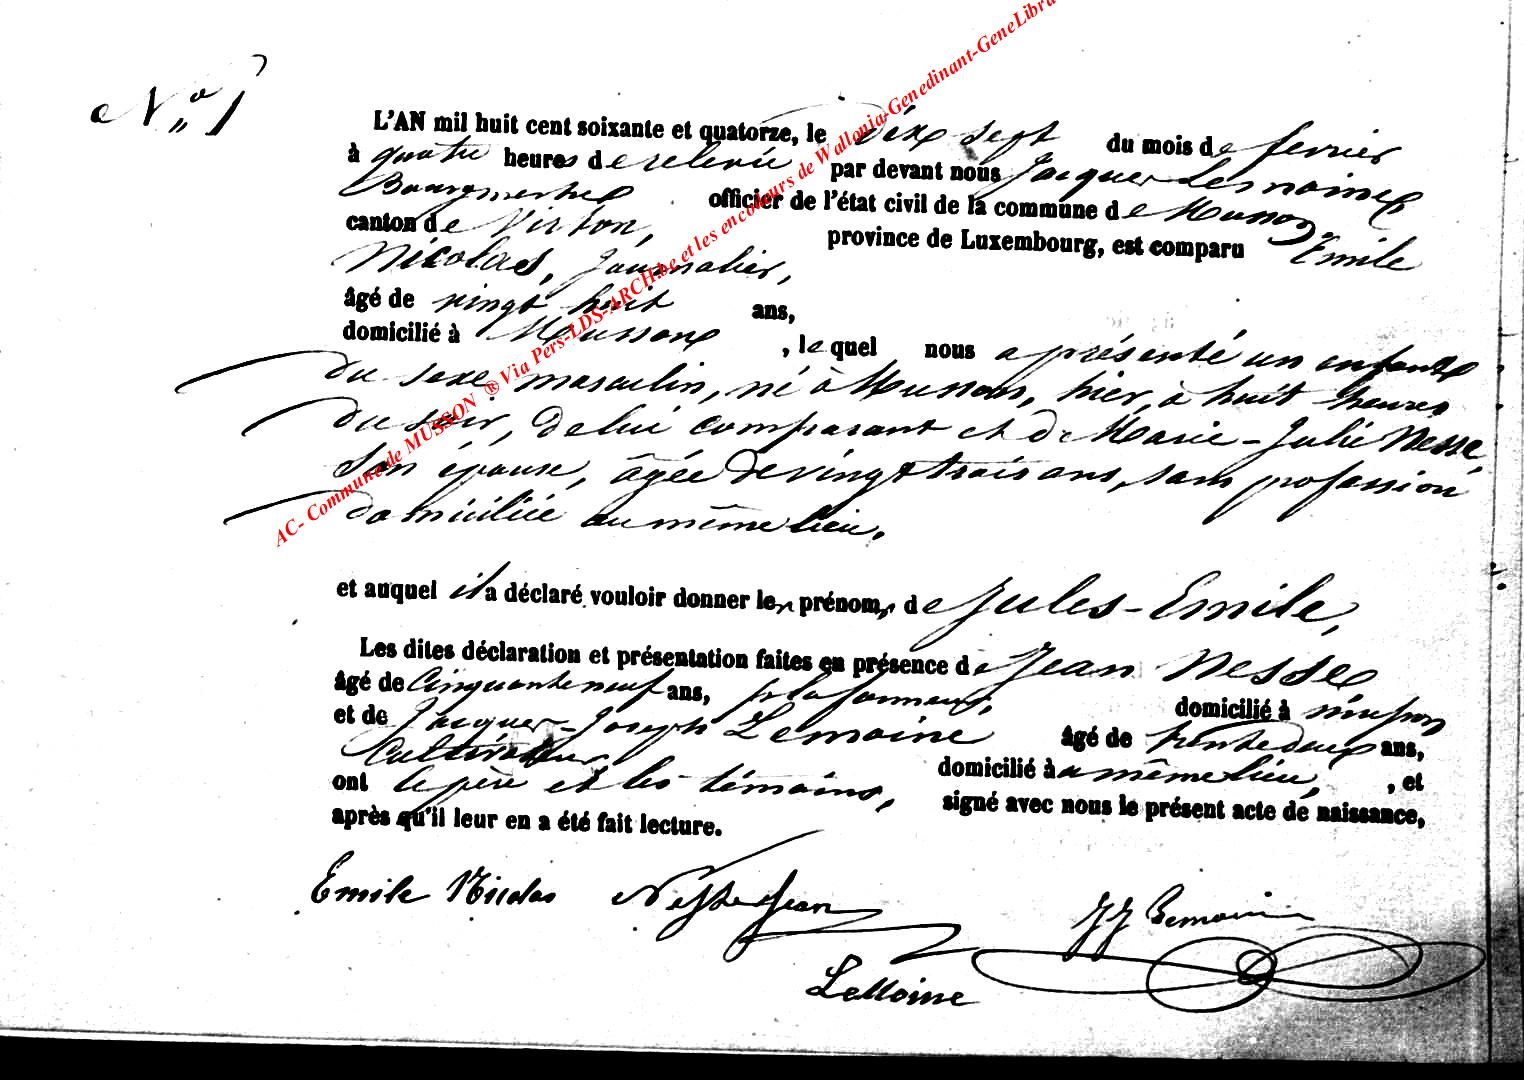 N° 1
L'AN mil huit cent soixante et quatorze, le dix sept du mois de fevrier
à quatre heures de relevée par devant nous Jacques Lemoine
Bourgmestre officier de l'état civil de la commune de Musson
canton de Virton, province de Luxembourg, est comparu Emile
Nicolas, Journalier,
âgé de vingt huit ans,
domicilié à Musson , lequel nous a présenté un enfant
du sexe masculin, né à Musson, hier, à huit heures
du soir, de lui comparant et de Marie-Julie Nesse,
son épouse, âgée de vingt trois ans, sans profession
domiciliée au même lieu.
et auquel il a déclaré vouloir donner les prénoms de Jules-Emile,
Les dites déclaration et présentation faites en présence de Jean Nesse
âgé de Cinquante neuf ans, plafonneur, domicilié à Musson
et de Jacques-Joseph Lemoine âgé de trente deux ans,
Cultivateur, domicilié au même lieu, , et
ont le père et les témoins, signé avec nous le présent acte de naissance,
après qu'il leur en a été fait lecture.
Emile Nicolas Nesse Jean JJ Lemoine
LeMoine
AC- Commune de MUSSON ® Via Pers-LDS-ARCH.be et les encodeurs de Wallonia-Genedinant-GeneLibra